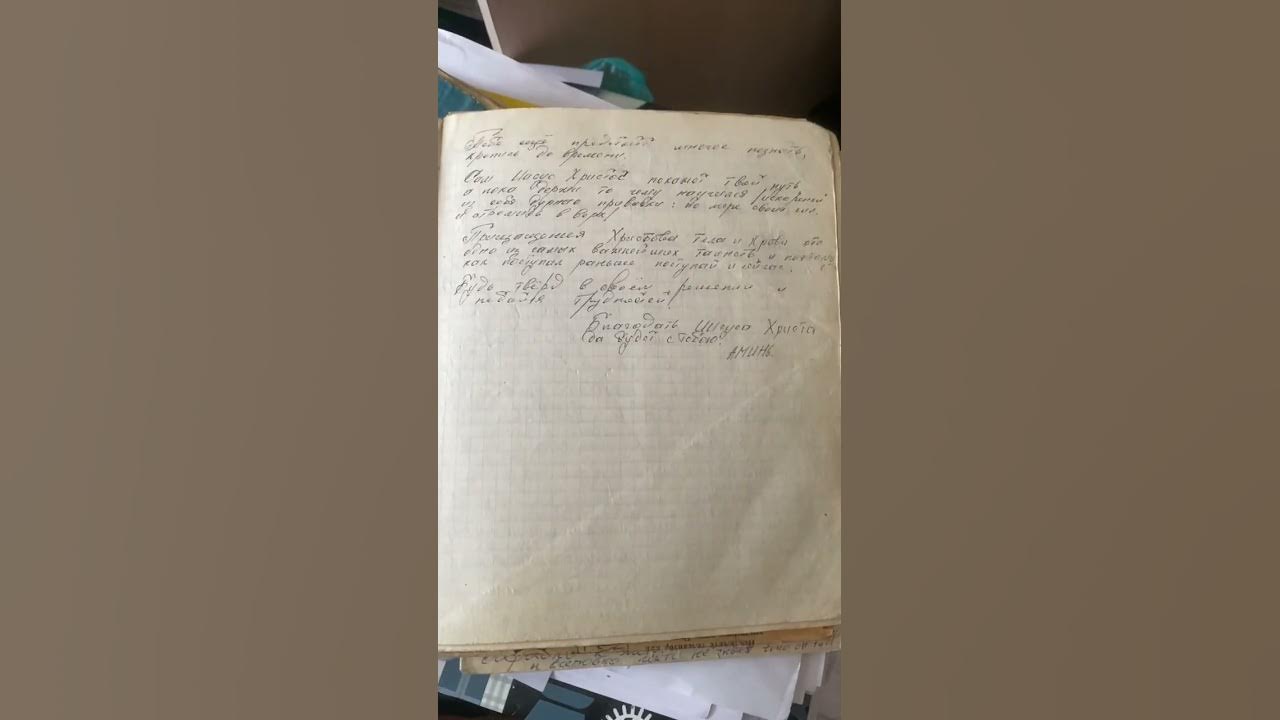 Тебе ещё предстоит многое познать,
крепись до времени.
Сам Иисус Христос покажет твой путь
а пока держи то чему научился
из себя дурные привычки: по мере своих сил.
и стремись в верх
Причащение Христова Тела и Крови это
одно из самых важнейших таинств и поэтому
как поступал раньше поступай и сейчас.
Будь твёрд в своём решении и
не бойся трудностей!
Благодать Иисуса Христа
да будет с тобою.
АМИНЬ